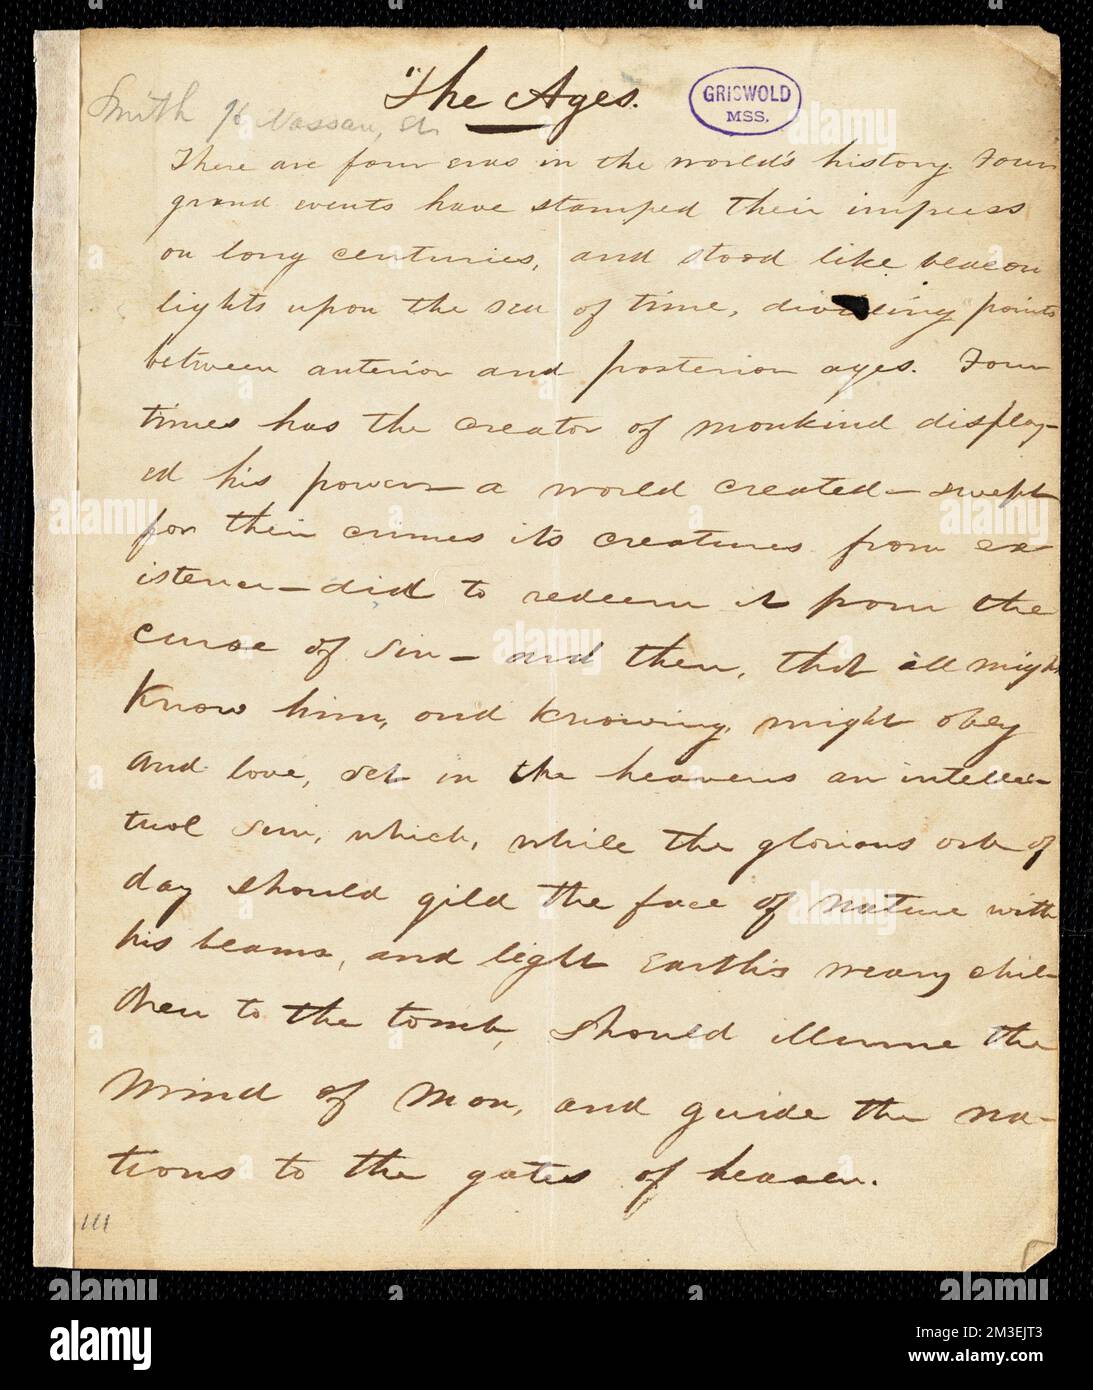 "The Ages.
GRISWOLD
MSS.
Smith Nassau, St
There are four eras in the world's history. Four
grand events have stamped their impress
on long centuries, and stood like beacon
lights upon the sea of time, dividing points
between anterior and posterior ages. Four
times has the creator of mankind display-
ed his power — a world created — swept
for their crimes its creatures from ex-
istence — died to redeem it from the
curse of sin — and then, that all might
know him, and knowing, might obey
and love, set in the heavens an intellec-
tual sun, which, while the glorious orb of
day should gild the face of nature with
his beams, and light Earth's weary chil-
dren to the tomb, should illumine the
mind of Man, and guide the na-
tions to the gates of heaven.
111
alamy
Image ID: 2M3EJT3
www.alamy.com